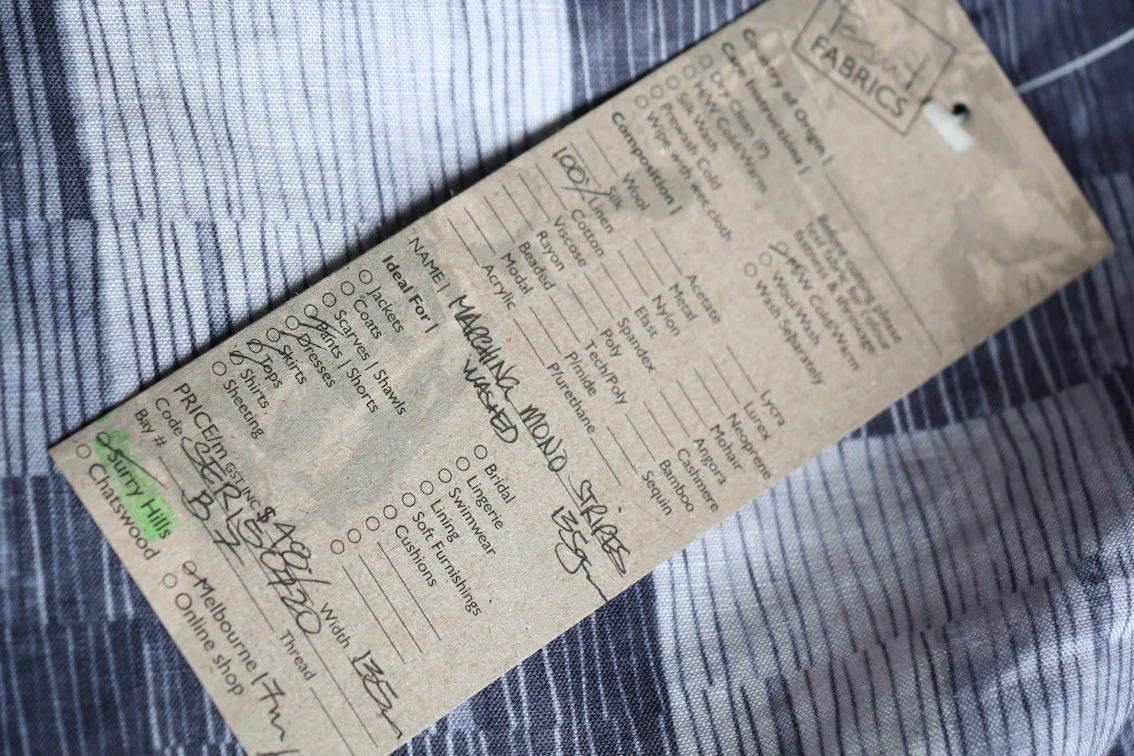 FABRICS
Country of Origin |
Care Instructions |
Dry Clean (P)
H/W Cold/Warm
Silk Wash
Prewash Cold
Wipe with wet cloth
Before cutting please
test fabric for colour
fastness & shrinkage
M/W Cold/Warm
Wool Wash
Wash Separately
Composition |
Wool
Silk
100% Linen
Cotton
Viscose
Rayon
Beaded
Modal
Acrylic
Acetate
Metal
Nylon
Elast
Spandex
Poly
Tech/Poly
P/mide
P/urethane
Lycra
Lurex
Neoprene
Mohair
Angora
Cashmere
Bamboo
Sequin
NAME | MARCHING MONO STRIPES
WASHED 135gm
Ideal For |
Jackets
Coats
Scarves | Shawls
Pants | Shorts
Dresses
Skirts
Tops
Shirts
Sheeting
Bridal
Lingerie
Swimwear
Lining
Soft Furnishings
Cushions
PRICE/m GST INC $48/ Width 135m
Code
Bay # B 7 Thread
Surry Hills
Chatswood
Melbourne | 7m
Online shop